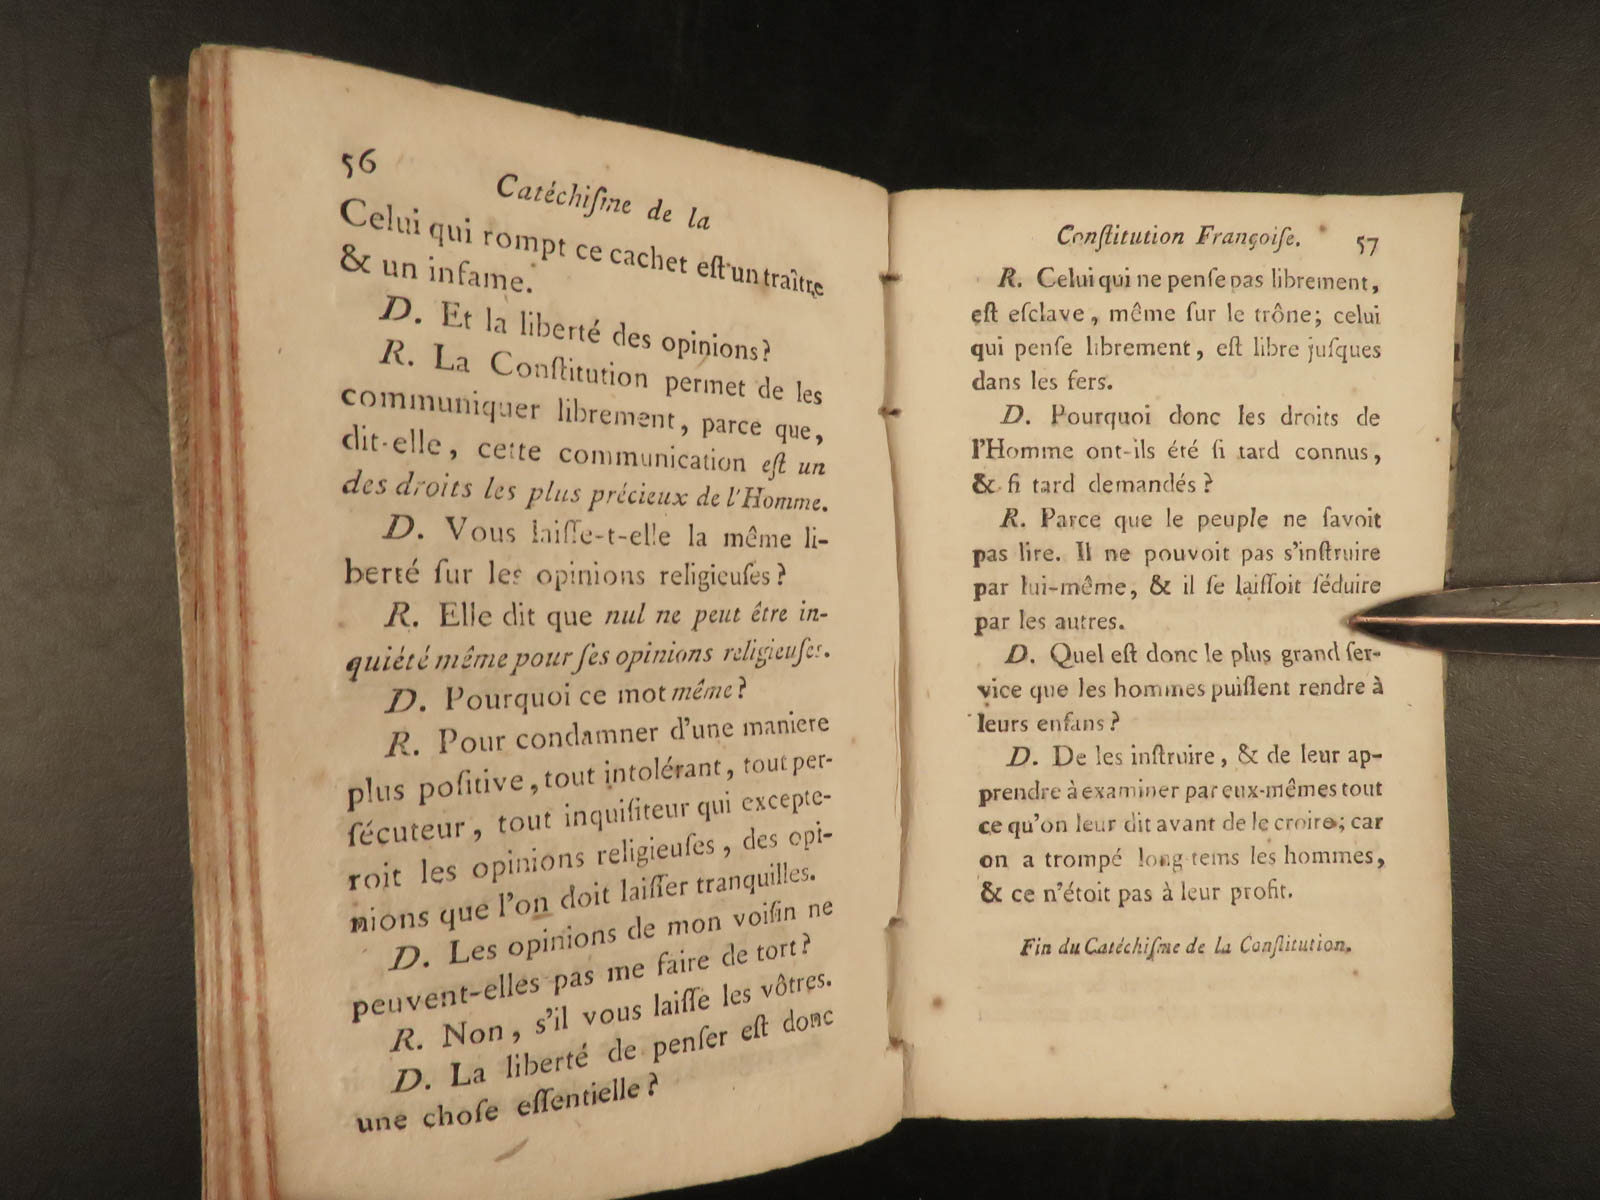 56
Catéchiſme de la
Celui qui rompt ce cachet eſt un traître
& un infame.
D. Et la liberté des opinions?
R. La Conſtitution permet de les
communiquer librement, parce que,
dit-elle, cette communication eſt un
des droits les plus précieux de l'Homme.
D. Vous laiſſe-t-elle la même li-
berté ſur les opinions religieuſes?
R. Elle dit que nul ne peut être in-
quiété même pour ſes opinions religieuſes.
D. Pourquoi ce mot même?
R. Pour condamner d'une maniere
plus poſitive, tout intolérant, tout per-
ſécuteur, tout inquiſiteur qui excepte-
roit les opinions religieuſes, des opi-
nions que l'on doit laiſſer tranquilles.
D. Les opinions de mon voiſin ne
peuvent-elles pas me faire de tort?
R. Non, s'il vous laiſſe les vôtres.
D. La liberté de penſer eſt donc
une choſe eſſentielle?
Conſtitution Françoiſe. 57
R. Celui qui ne penſe pas librement,
eſt eſclave, même ſur le trône; celui
qui penſe librement, eſt libre juſques
dans les fers.
D. Pourquoi donc les droits de
l'Homme ont-ils été ſi tard connus,
& ſi tard demandés?
R. Parce que le peuple ne ſavoit
pas lire. Il ne pouvoit pas s'inſtruire
par lui-même, & il ſe laiſſoit ſéduire
par les autres.
D. Quel eſt donc le plus grand ſer-
vice que les hommes puiſſent rendre à
leurs enfans?
D. De les inſtruire, & de leur ap-
prendre à examiner par eux-mêmes tout
ce qu'on leur dit avant de le croire; car
on a trompé long-tems les hommes,
& ce n'étoit pas à leur profit.
Fin du Catéchiſme de la Conſtitution.